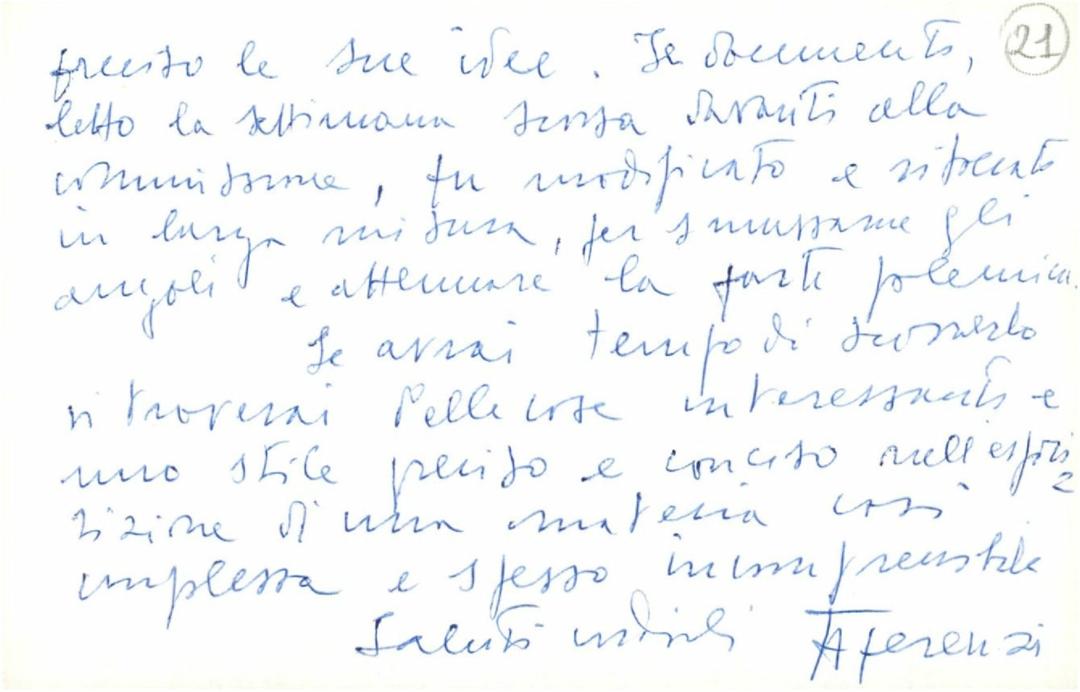 21
preciso le sue idee. Il documento,
letto la settimana scorsa davanti alla
commissione, fu modificato e ritoccato
in larga misura, per smussarne gli
angoli e attenuare la parte polemica.
Se avrai tempo di scorrerlo
vi troverai delle cose interessanti e
uno stile preciso e conciso nell'espo
sizione di una materia così
complessa e spesso incomprensibile
Saluti cordiali